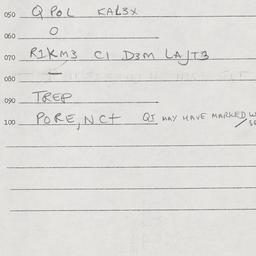 050 Q POL KAL3X
060 O
070 R1KM3 C1 D3M LAJT3
080 —
090 TREP
100 PORE, NCT QI MAY HAVE MARKED W